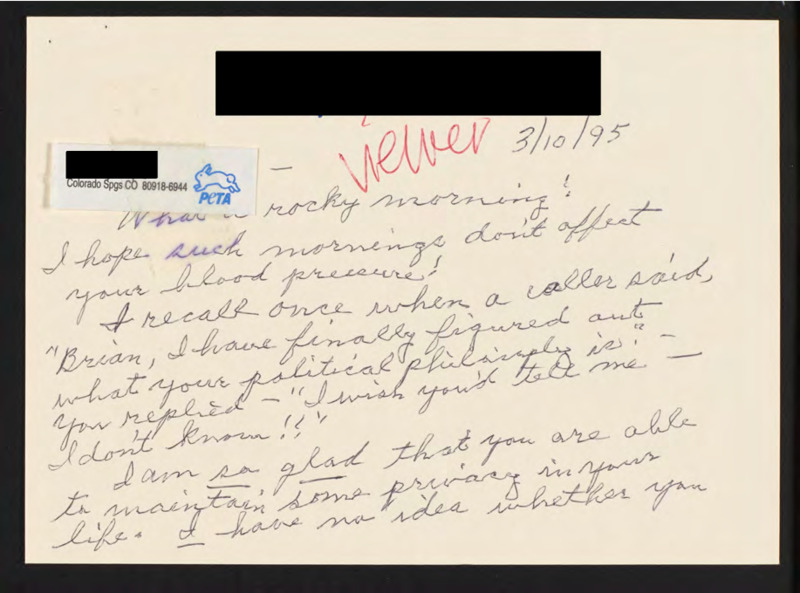 viewer
3/10/95
Colorado Spgs CO 80918-6944
PETA
What a rocky morning!
I hope such mornings don't affect
your blood pressure!
I recall once when a caller said,
"Brian, I have finally figured out
what your political philosophy is."
You replied - "I wish you'd tell me -
I don't know!!"
I am so glad that you are able
to maintain some privacy in your
life. I have no idea whether you